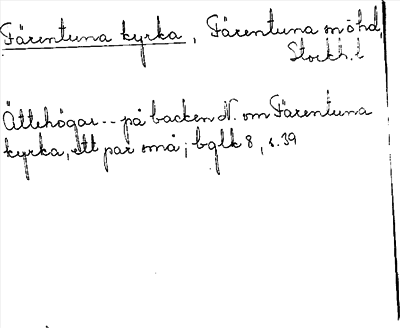 Färentuna kyrka, Färentuna sn o hd,
Stockh. l
Ättehögar -- på backen N. om Färentuna
kyrka, ett par små; bglk 8, s. 39